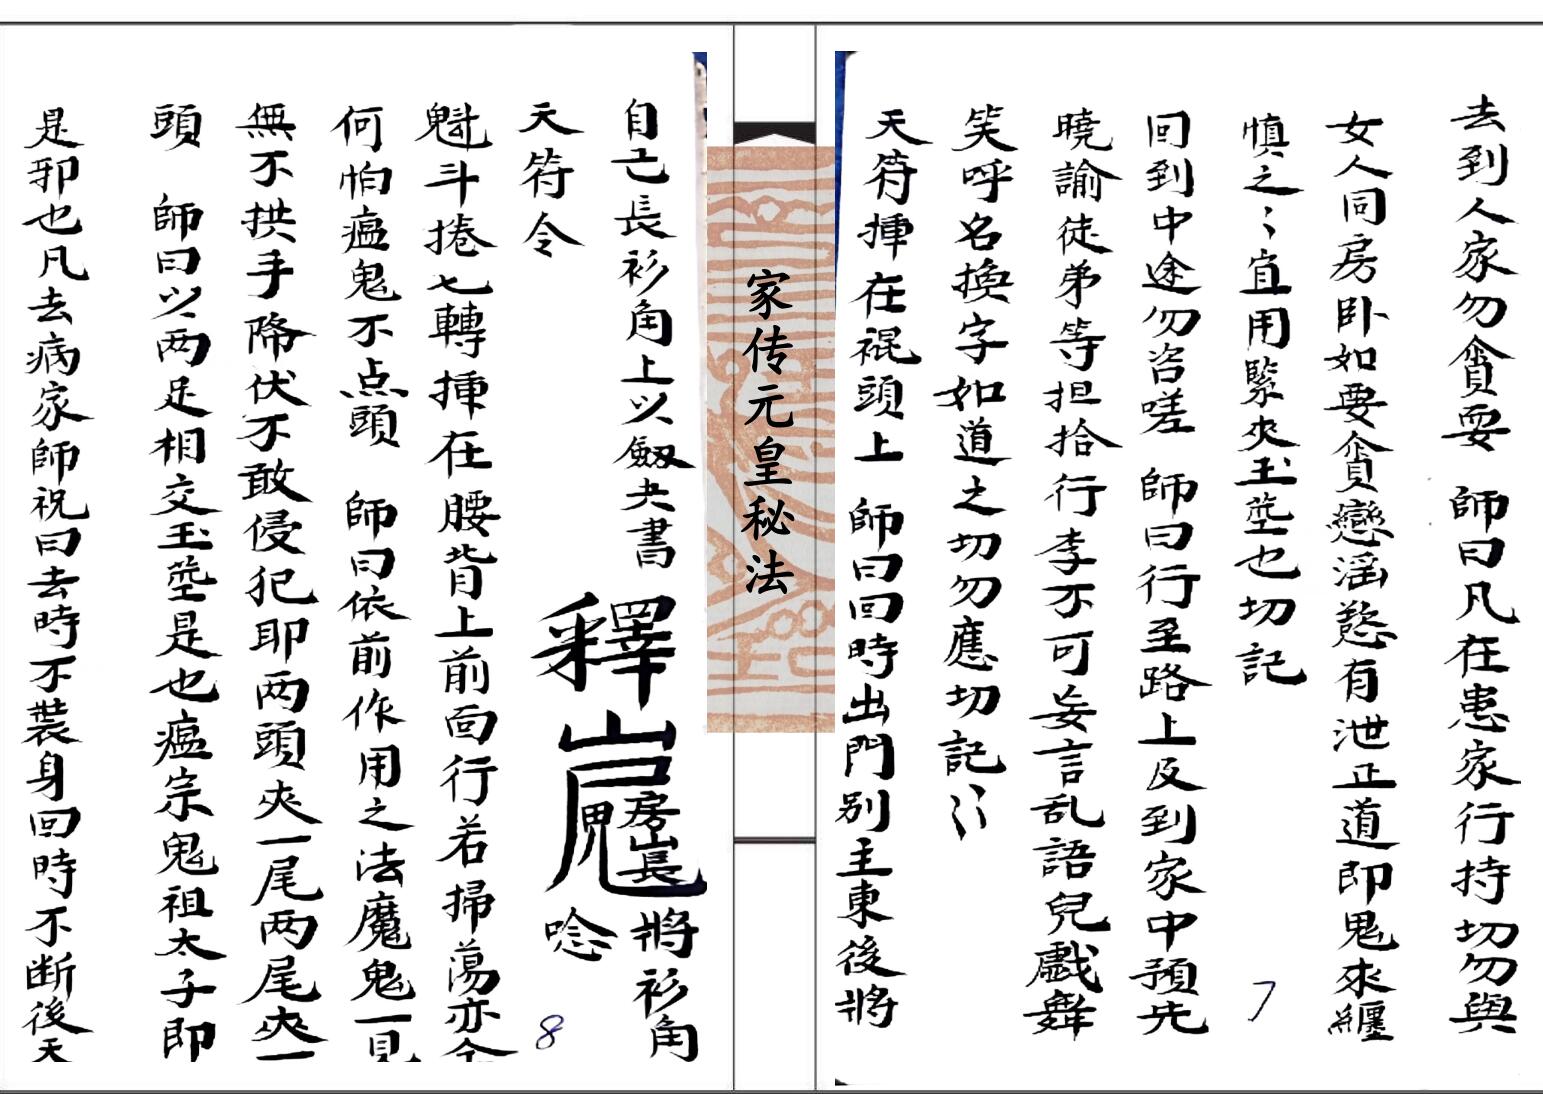 去到人家勿貪耍　師曰凡在患家行持切勿與
女人同房卧如要貪戀淫慾有泄正道即鬼來纏
慎之〻宜用緊夾玉莖也切記
回到中途勿咨嗟　師曰行至路上及到家中預先
曉諭徒弟等担拾行李不可妄言乱語兒戲舞
笑呼名換字如道之切勿應切記〻
天符揷在裩頭上　師曰回時出門別主東後將
7
家传元皇秘法
自己長衫角上以劔夬書　將衫角
天符令　釋　房山長　唸
魁斗捲七轉揷在腰背上前面行若掃蕩亦念
何怕瘟鬼不点頭　師曰依前作用之法魔鬼一見
無不拱手降伏不敢侵犯耶两頭夾一尾两尾夾一
頭　師曰以两足相交玉莖是也瘟宗鬼祖太子即
是邪也凡去病家師祝曰去時不裝身回時不断後天
8